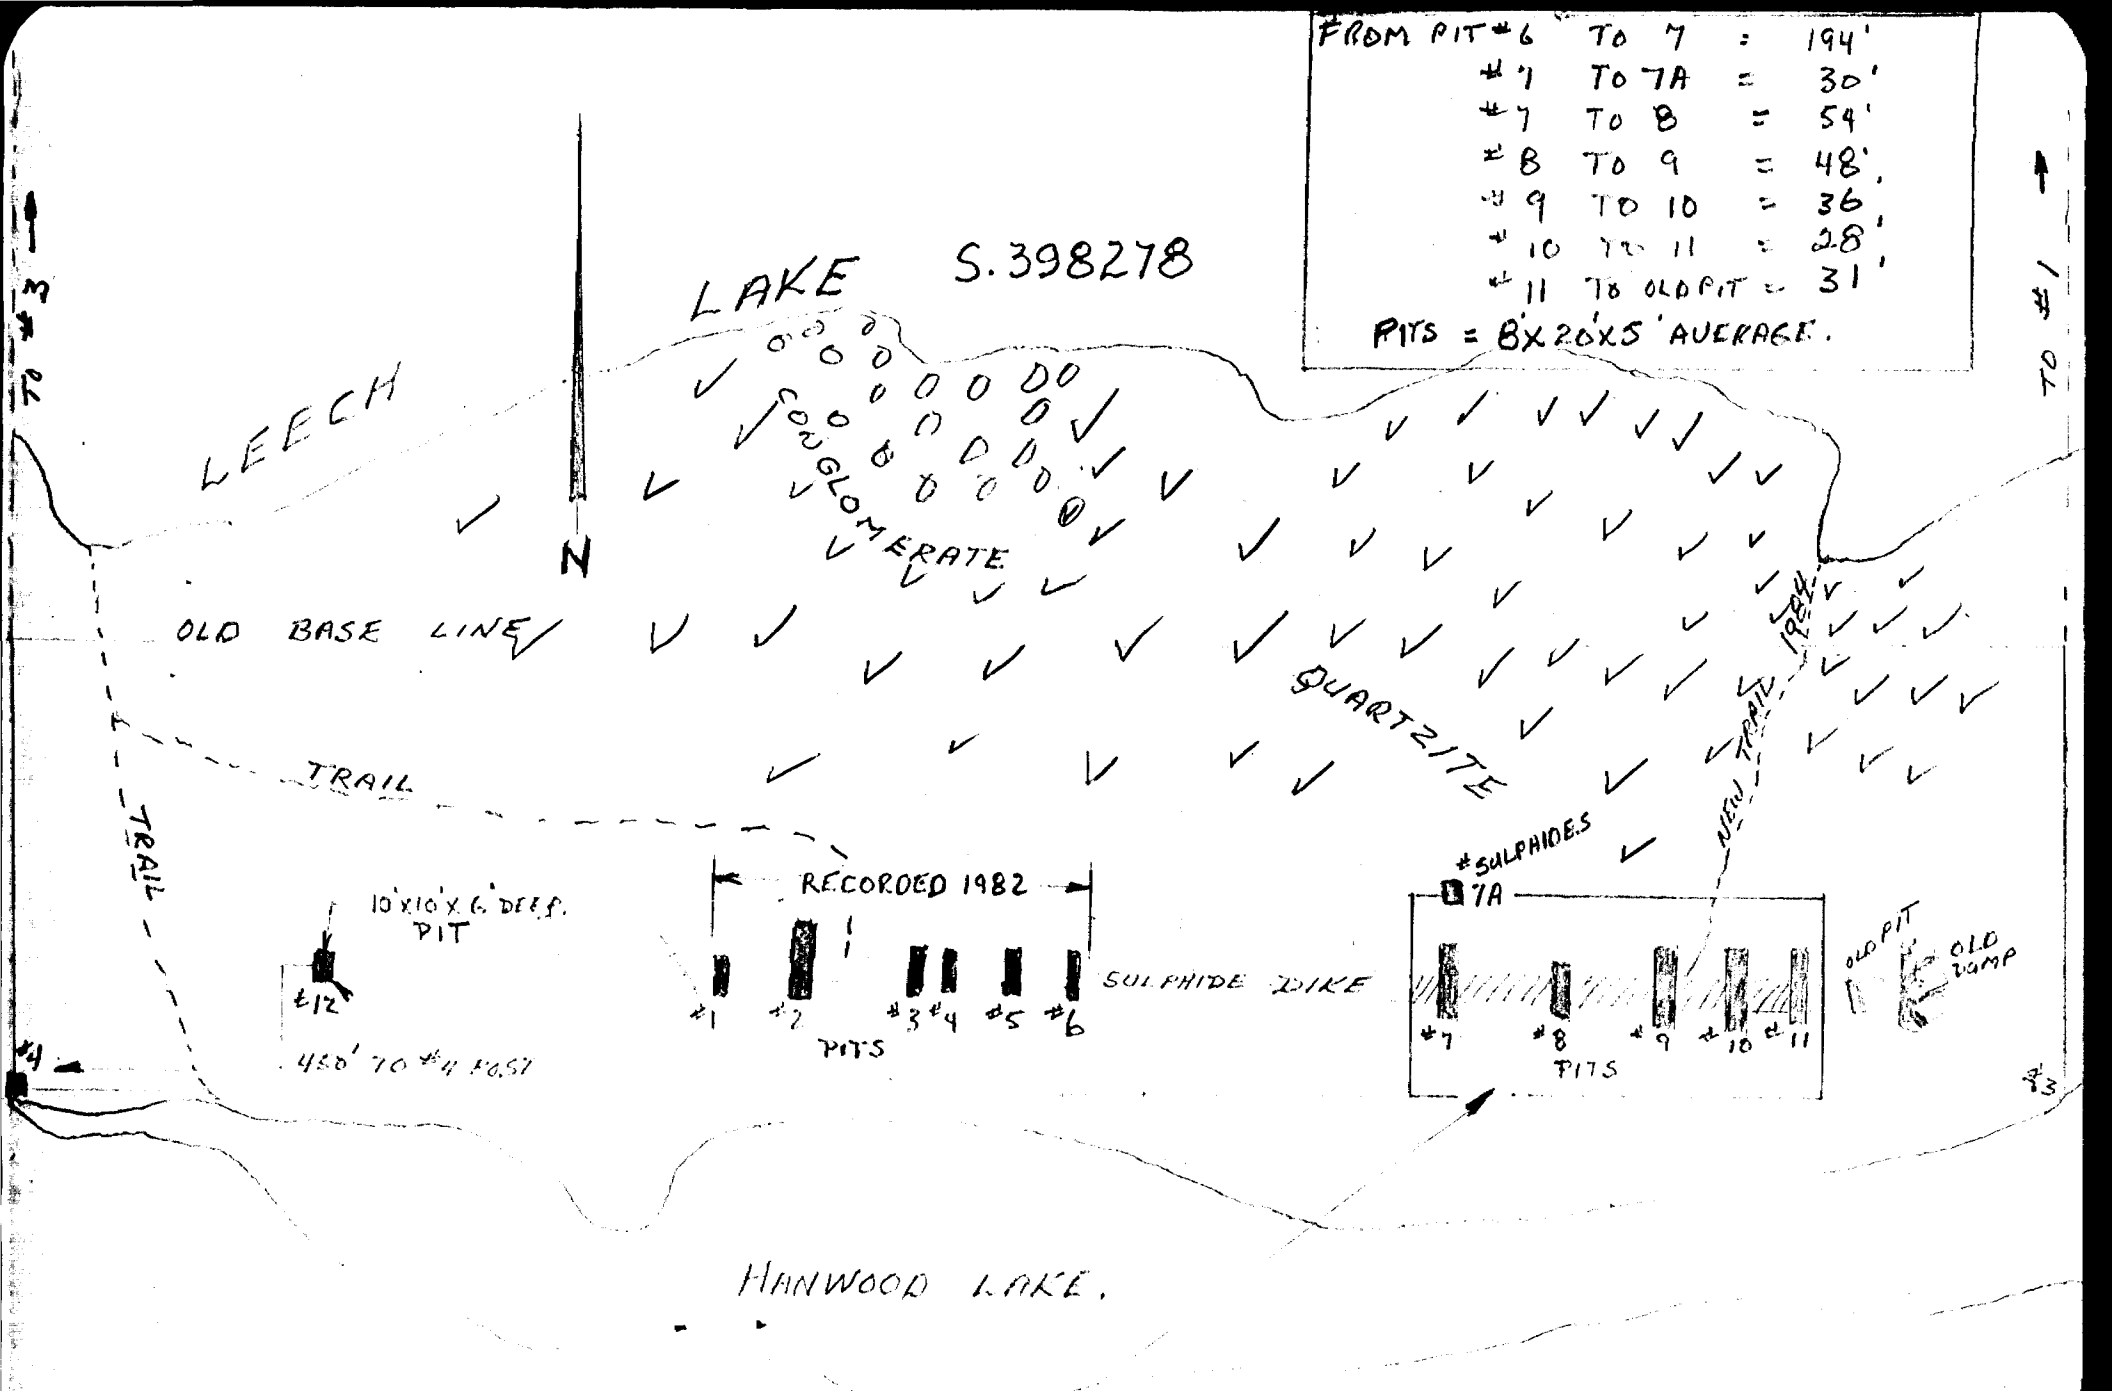 FROM PIT #6 TO 7 = 194'
#7 TO 7A = 30'
#7 TO 8 = 54'
#8 TO 9 = 48'
#9 TO 10 = 36'
#10 TO 11 = 28'
#11 TO OLD PIT = 31'
PITS = 8'X20'X5' AVERAGE.
TO #3
TO #1
LEECH LAKE S.398278
CONGLOMERATE
N
OLD BASE LINE
QUARTZITE
NEW TRAIL 1984
TRAIL
TRAIL
#SULPHIDES
7A
RECORDED 1982
10'X10'X6' DEEP.
PIT
OLD PIT
OLD DUMP
SULPHIDE DIKE
#12
#1 #2 #3 #4 #5 #6
PITS
#7 #8 #9 #10 #11
PITS
#4
TO #4 POST
#3
HANWOOD LAKE.